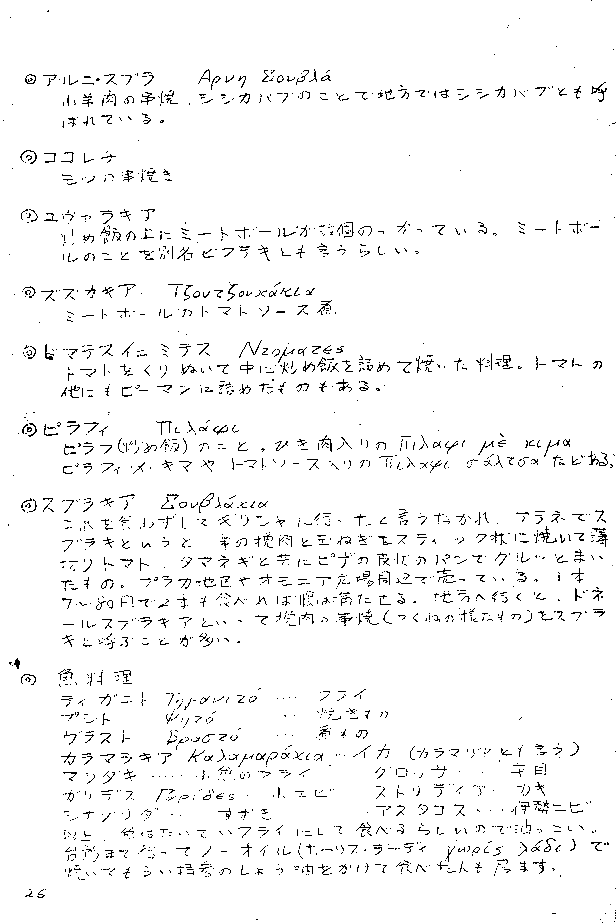 ◎アルニ・スブラ　Αρνη Σουβλά
小羊肉の串焼、シシカバブのことで地方ではシシカバブとも呼
ばれている。
◎ココレチ
モツの串焼き
◎ユヴァラキア
炒め飯の上にミートボールが数個のっかっている。ミートボー
ルのことを別名ビフテキとも言うらしい。
◎ズズカキア　Τζουτζουκάκια
ミートボールのトマトソース煮
◎ドマテスイェミテス　Ντοματες
トマトをくりぬいて中に炒め飯を詰めて焼いた料理。トマトの
他にもピーマンに詰めたものもある。
◎ピラフィ　Πιλάφι
ピラフ(炒め飯)のこと。ひき肉入りのΠιλαφι μὲ κιμα
ピラフィ・メ・キマやトマトソース入りのΠιλαφι σάλτσαなどある。
◎スブラキア　Σουβλάκια
これを食わずしてギリシャに行ったと言うなかれ。アテネでス
ブラキというと、羊の挽肉と玉ねぎをスティック状に焼いて薄
切りトマト、タマネギと共にピザの皮状のパンでグルッとまい
たもの。プラカ地区やオモニア広場周辺で売っている。1本
70〜80円で2本も食べれば腹は満たせる。地方へ行くと、ドネ
ールスブラキアといって挽肉の串焼(つくねの様なもの)をスブラ
キと呼ぶことが多い。
◎ 魚料理
ティガニト Τηγανιτό … フライ
プシト Ψητό … 焼きもの
ヴラスト Βραστό … 煮もの
カラマラキア Καλαμαράκια … イカ (カラマリアとも言う)
マリダキ …… 小魚のフライ　グロッサ … 平目
ガリデス Γαρίδες … 小エビ　ストリディア … カキ
シナグリダ … すずき　アスタコス … 伊勢エビ
以上、魚はたいていフライにして食べるらしいので油っこい。
台所まで行ってノーオイル(ホーリス・ラーディ χωρίς λάδι)で
焼いてもらい持参のしょう油をかけて食べた人も居ます。
26